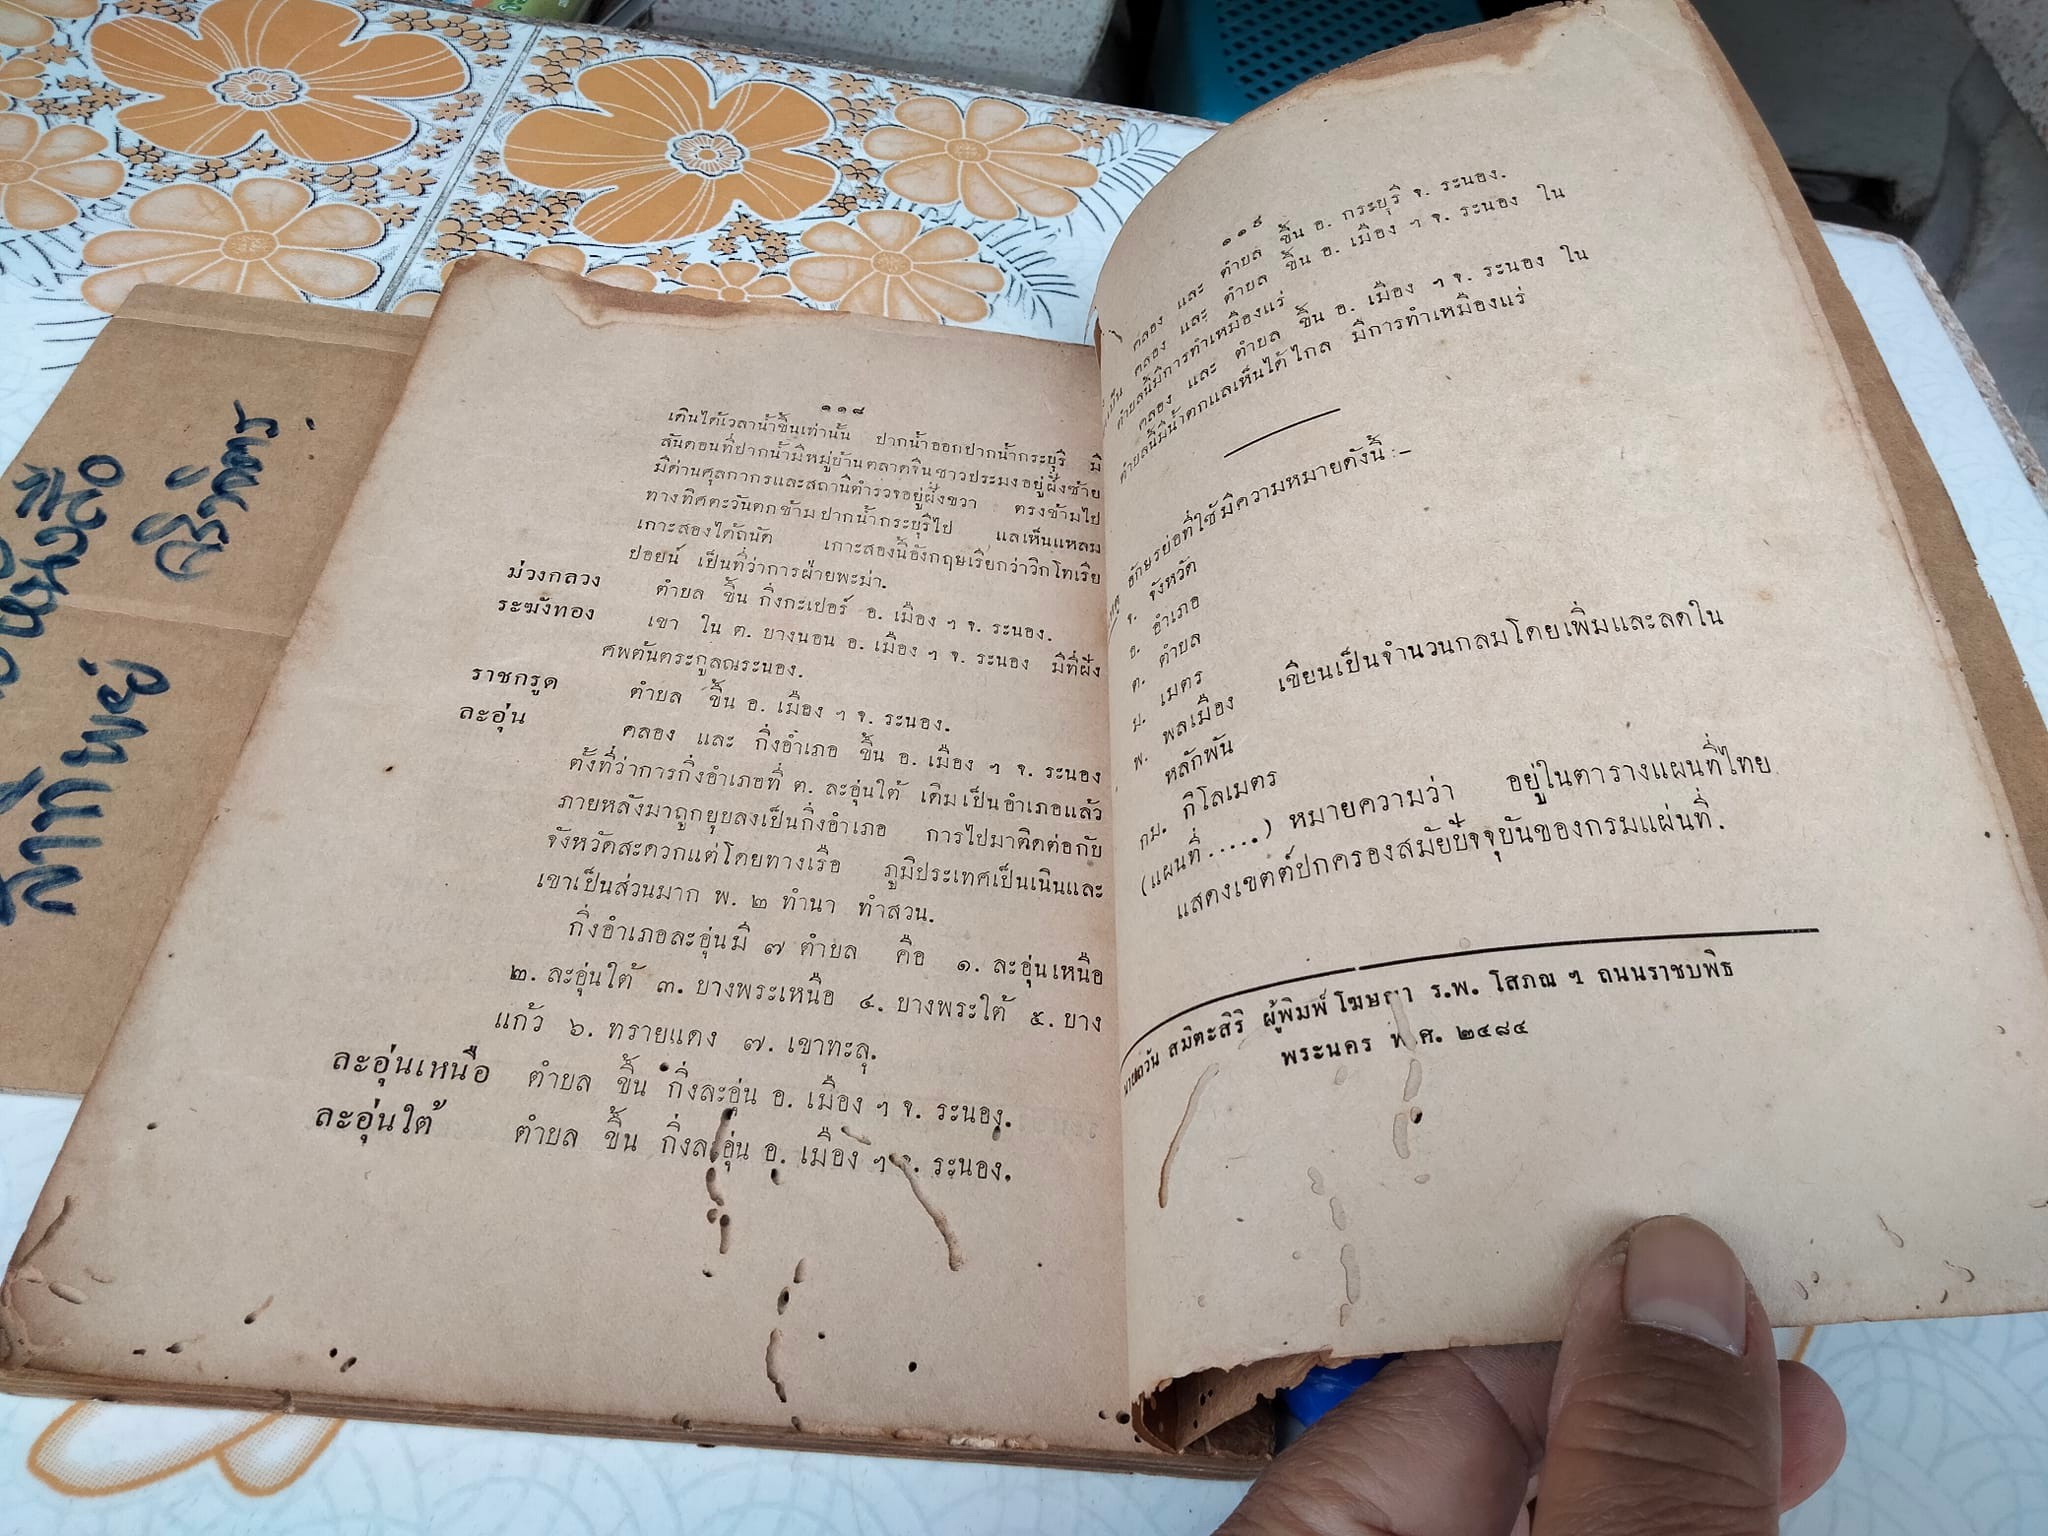 ๑๑๘
เดินได้เวลาน้ำขึ้นเท่านั้น ปากน้ำออกปากน้ำกระบุรี มี
สันดอนที่ปากน้ำมีหมู่บ้านตลาดจีนชาวประมงอยู่ฝั่งซ้าย
มีด่านศุลกากรและสถานีตำรวจอยู่ฝั่งขวา ตรงข้ามไป
ทางทิศตะวันตกข้ามปากน้ำกระบุรีไป แลเห็นแหลม
เกาะสองได้ถนัด เกาะสองนี้อังกฤษเรียกว่าวิกโทเรีย
ปอยน์ เป็นที่ว่าการฝ่ายพะม่า.
ม่วงกลวง ตำบล ขึ้น กิ่งกะเปอร์ อ. เมือง ฯ จ. ระนอง.
ระฆังทอง เขา ใน ต. บางนอน อ. เมือง ฯ จ. ระนอง มีที่ฝัง
ศพต้นตระกูลณระนอง.
ราชกรูด ตำบล ขึ้น อ. เมือง ฯ จ. ระนอง.
ละอุ่น คลอง และ กิ่งอำเภอ ขึ้น อ. เมือง ฯ จ. ระนอง
ตั้งที่ว่าการกิ่งอำเภอที่ ต. ละอุ่นใต้ เดิมเป็นอำเภอแล้ว
ภายหลังมาถูกยุบลงเป็นกิ่งอำเภอ การไปมาติดต่อกับ
จังหวัดสะดวกแต่โดยทางเรือ ภูมิประเทศเป็นเนินและ
เขาเป็นส่วนมาก พ. ๒ ทำนา ทำสวน.
กิ่งอำเภอละอุ่นมี ๗ ตำบล คือ ๑. ละอุ่นเหนือ
๒. ละอุ่นใต้ ๓. บางพระเหนือ ๔. บางพระใต้ ๕. บาง
แก้ว ๖. ทรายแดง ๗. เขาทะลุ.
ละอุ่นเหนือ ตำบล ขึ้น กิ่งละอุ่น อ. เมือง ฯ จ. ระนอง.
ละอุ่นใต้ ตำบล ขึ้น กิ่งละอุ่น อ. เมือง ฯ จ. ระนอง.
๑๑๙
คลอง และ ตำบล ขึ้น อ. กระบุรี จ. ระนอง.
คลอง และ ตำบล ขึ้น อ. เมือง ฯ จ. ระนอง ใน
ตำบลนี้มีการทำเหมืองแร่
คลอง และ ตำบล ขึ้น อ. เมือง ฯ จ. ระนอง ใน
ตำบลนี้มีน้ำตกแลเห็นได้ไกล มีการทำเหมืองแร่
อักษรย่อที่ใช้มีความหมายดังนี้ :–
จ. จังหวัด
อ. อำเภอ
ต. ตำบล
ม. เมตร
พ. พลเมือง เขียนเป็นจำนวนกลมโดยเพิ่มและลดใน
หลักพัน
กม. กิโลเมตร
(แผนที่ .....) หมายความว่า อยู่ในตารางแผนที่ไทย
แสดงเขตต์ปกครองสมัยปัจจุบันของกรมแผนที่.
นายถวัน สมิตะสิริ ผู้พิมพ์โฆษณา ร.พ. โสภณ ฯ ถนนราชบพิธ
พระนคร พ.ศ. ๒๔๘๔